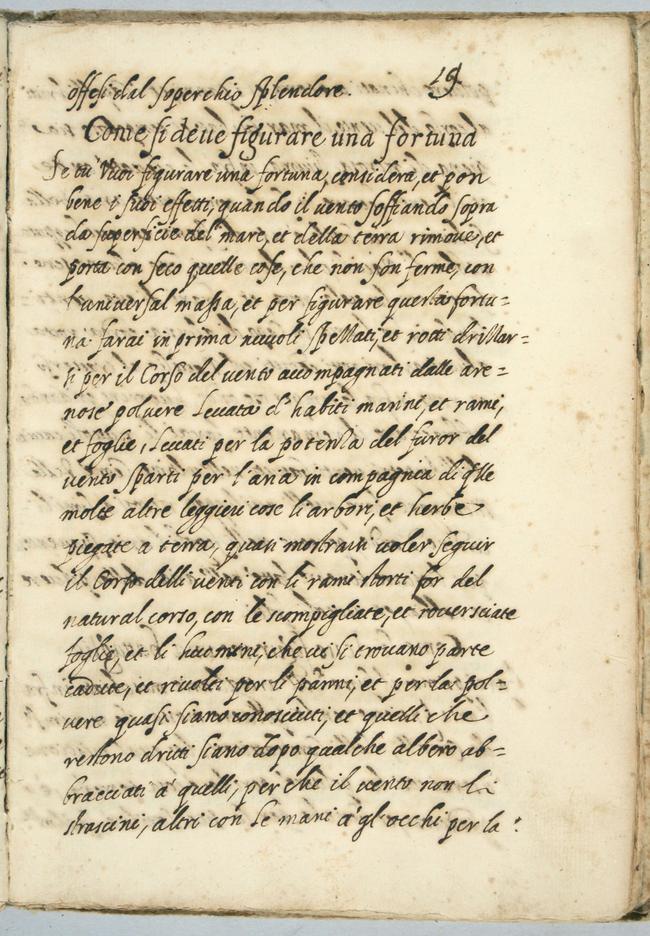 19
offesi dal soperchio splendore.
Come si deve figurare una fortuna
Se tu vuoi figurare una fortuna, considera, et pon
bene i suoi effetti, quando il vento soffiando sopra
da superficie del mare, et della terra rimove, et
porta con seco quelle cose, che non son ferme, con
l'universal massa, et per figurare questa fortu=
na farai in prima nuvoli spezzati, et rotti drizzar=
si per il Corso del vento accompagnati dalle are=
nose polvere Levata d' habiti marini, et rami,
et foglie, Levati per la potenza del furor del
vento sparti per l'aria in compagnia di qlle
molte altre leggieri cose li arbori, et herbe
piegate a terra, quasi mostrarsi voler seguir
il Corso delli venti con li rami storti for del
natural corso, con le scompigliate, et roversciate
foglie, et li huomini, che vi si trovano parte
cadute, et rivolti per li panni, et per la pol=
vere quasi siano conosciuti, et quelli che
restono dritti siano dopo qualche albero ab=
bracciati a quelli, perche il vento non li
strascini, altri con le mani a gl'occhi per la